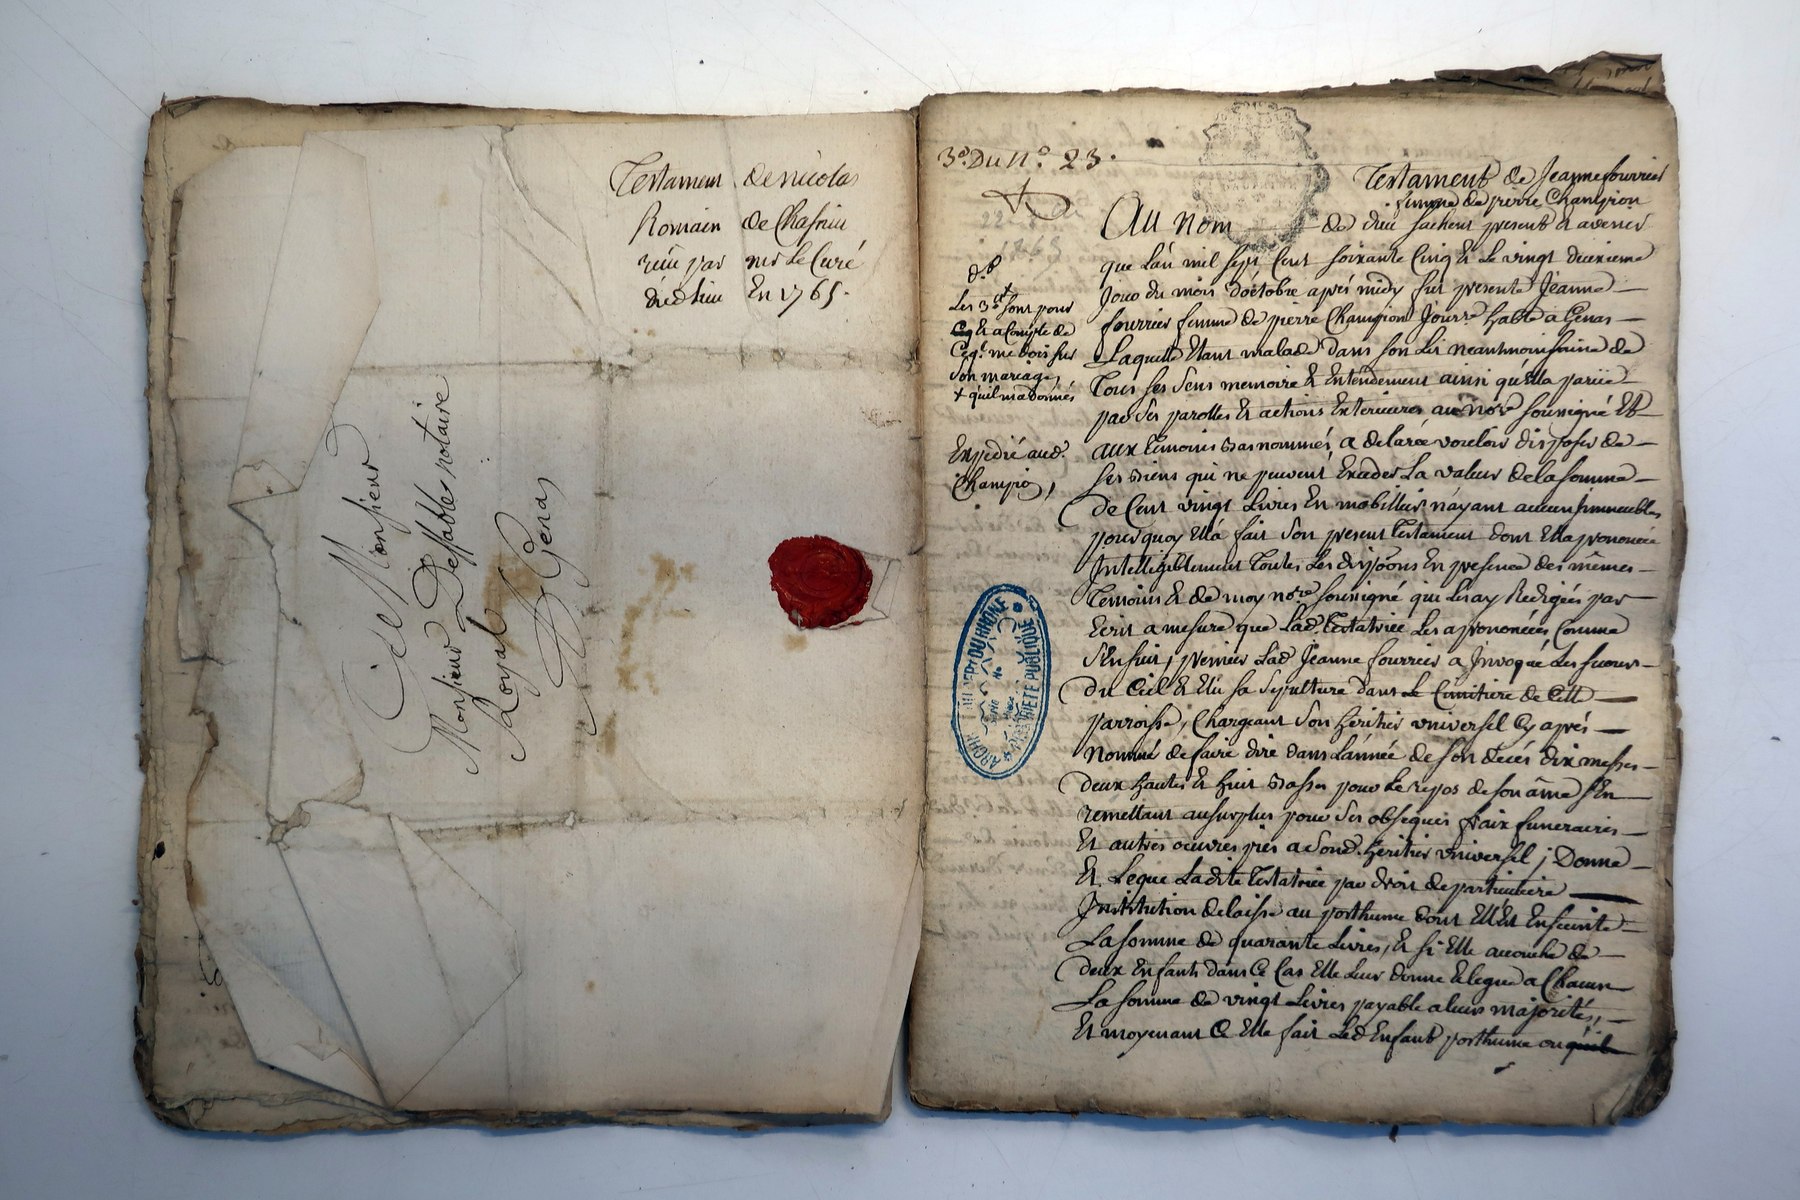 Testament de nicolas
Romain de Chassieu
reçu par mr Le Curé
dud lieu En 1765.
A Monsieur
Monsieur Dessables notaire
Royal
A Genas
3e. Du N.o 23.
Testament de Jeanne fourrier
femme de pierre Champion
Au Nom de dieu sachent presents et avenir
que L'an mil sept Cent soixante Cinq et Le vingt deuxieme
Jour du mois d'octobre aprés midy fut presente Jeanne
fourrier femme de pierre Champion Jour.r habt. a Genas
Laquelle Etant malade dans son Lit neantmoins saine de
Tous ses sens memoire et Entendement ainsi qu'Ella parüe
par ses parolles et actions Exterieures au nore. soussigné Et
aux temoins bas nommés, a delaréé vouloir disposer de
ses biens qui ne peuvent Exceder La valeur de la somme
de Cent vingt Livres En mobillier n'ayant aucun Immeubles
pourquoy Ella fait son present testament dont Ella prononcé
Intelligiblement Toutes Les dispoons. En presence des mêmes
Temoins et de moy nore. soussigné qui Les ay Redigées par
Ecrit a mesure que Lad. testatrice Les a prononcées Comme
s'Ensuit, premier Lad Jeanne fourrier a Invoqué Les secours
du Ciel et Elu sa sepulture dans Le Cimitiere de Cette
parroisse, Chargeant son heritier vniversel Cy aprés
Nommé de faire dire dans L'année de son decés dix messes
deux hautes et huit basses pour Le repos de son âme s'En
remettant au surplus pour ses obseques fraix funeraires
Et autres oeuvres pies a sond. heritier vniversel; Donne
Et Legue Ladite testatrice par droit de particuliere
Institution delaissé au posthume dont Ell'Est Enceinte
La somme de quarante Livres, Et si Elle accouche de
deux Enfants dans Ce Cas Elle Leur donne et legue a Chacun
La somme de vingt Livres payable a leurs majorités,
Et moyenant Ce Elle fait Led Enfant posthume ou
d.t
Les 3 sont pour
et a Compte de
Ceq.l me dois sur
son mariage,
+ quil ma donnés
Expedié aud.
Champion,
ARCHIV DU RHÔNE
PROPRIÉTÉ PUBLIQUE